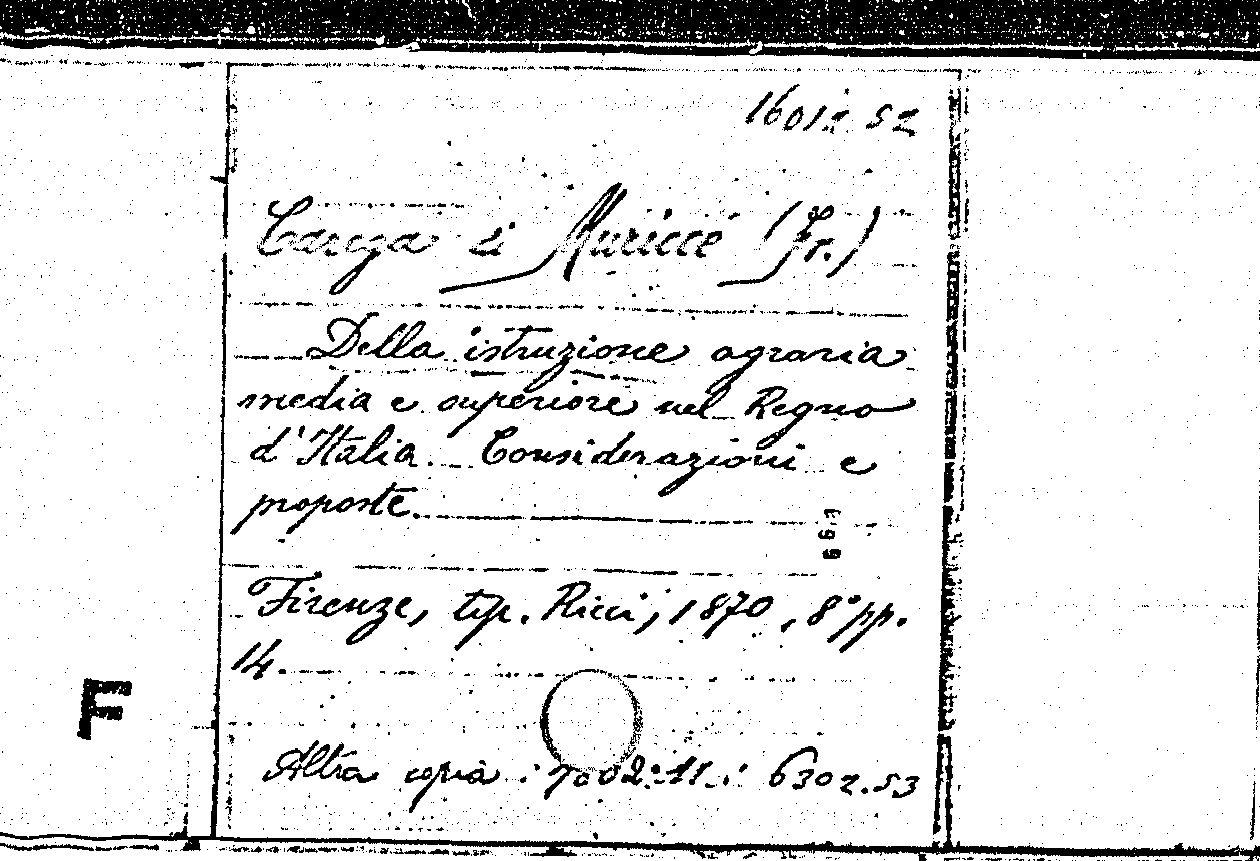 16012.52
Carega di Muricce (Fr.)
Della istruzione agraria
media e superiore nel Regno
d'Italia. Considerazioni e
proposte.
Firenze, tip. Ricci, 1870, 8° pp.
14.
F
Altra copia: 7002.11.: 6302.53